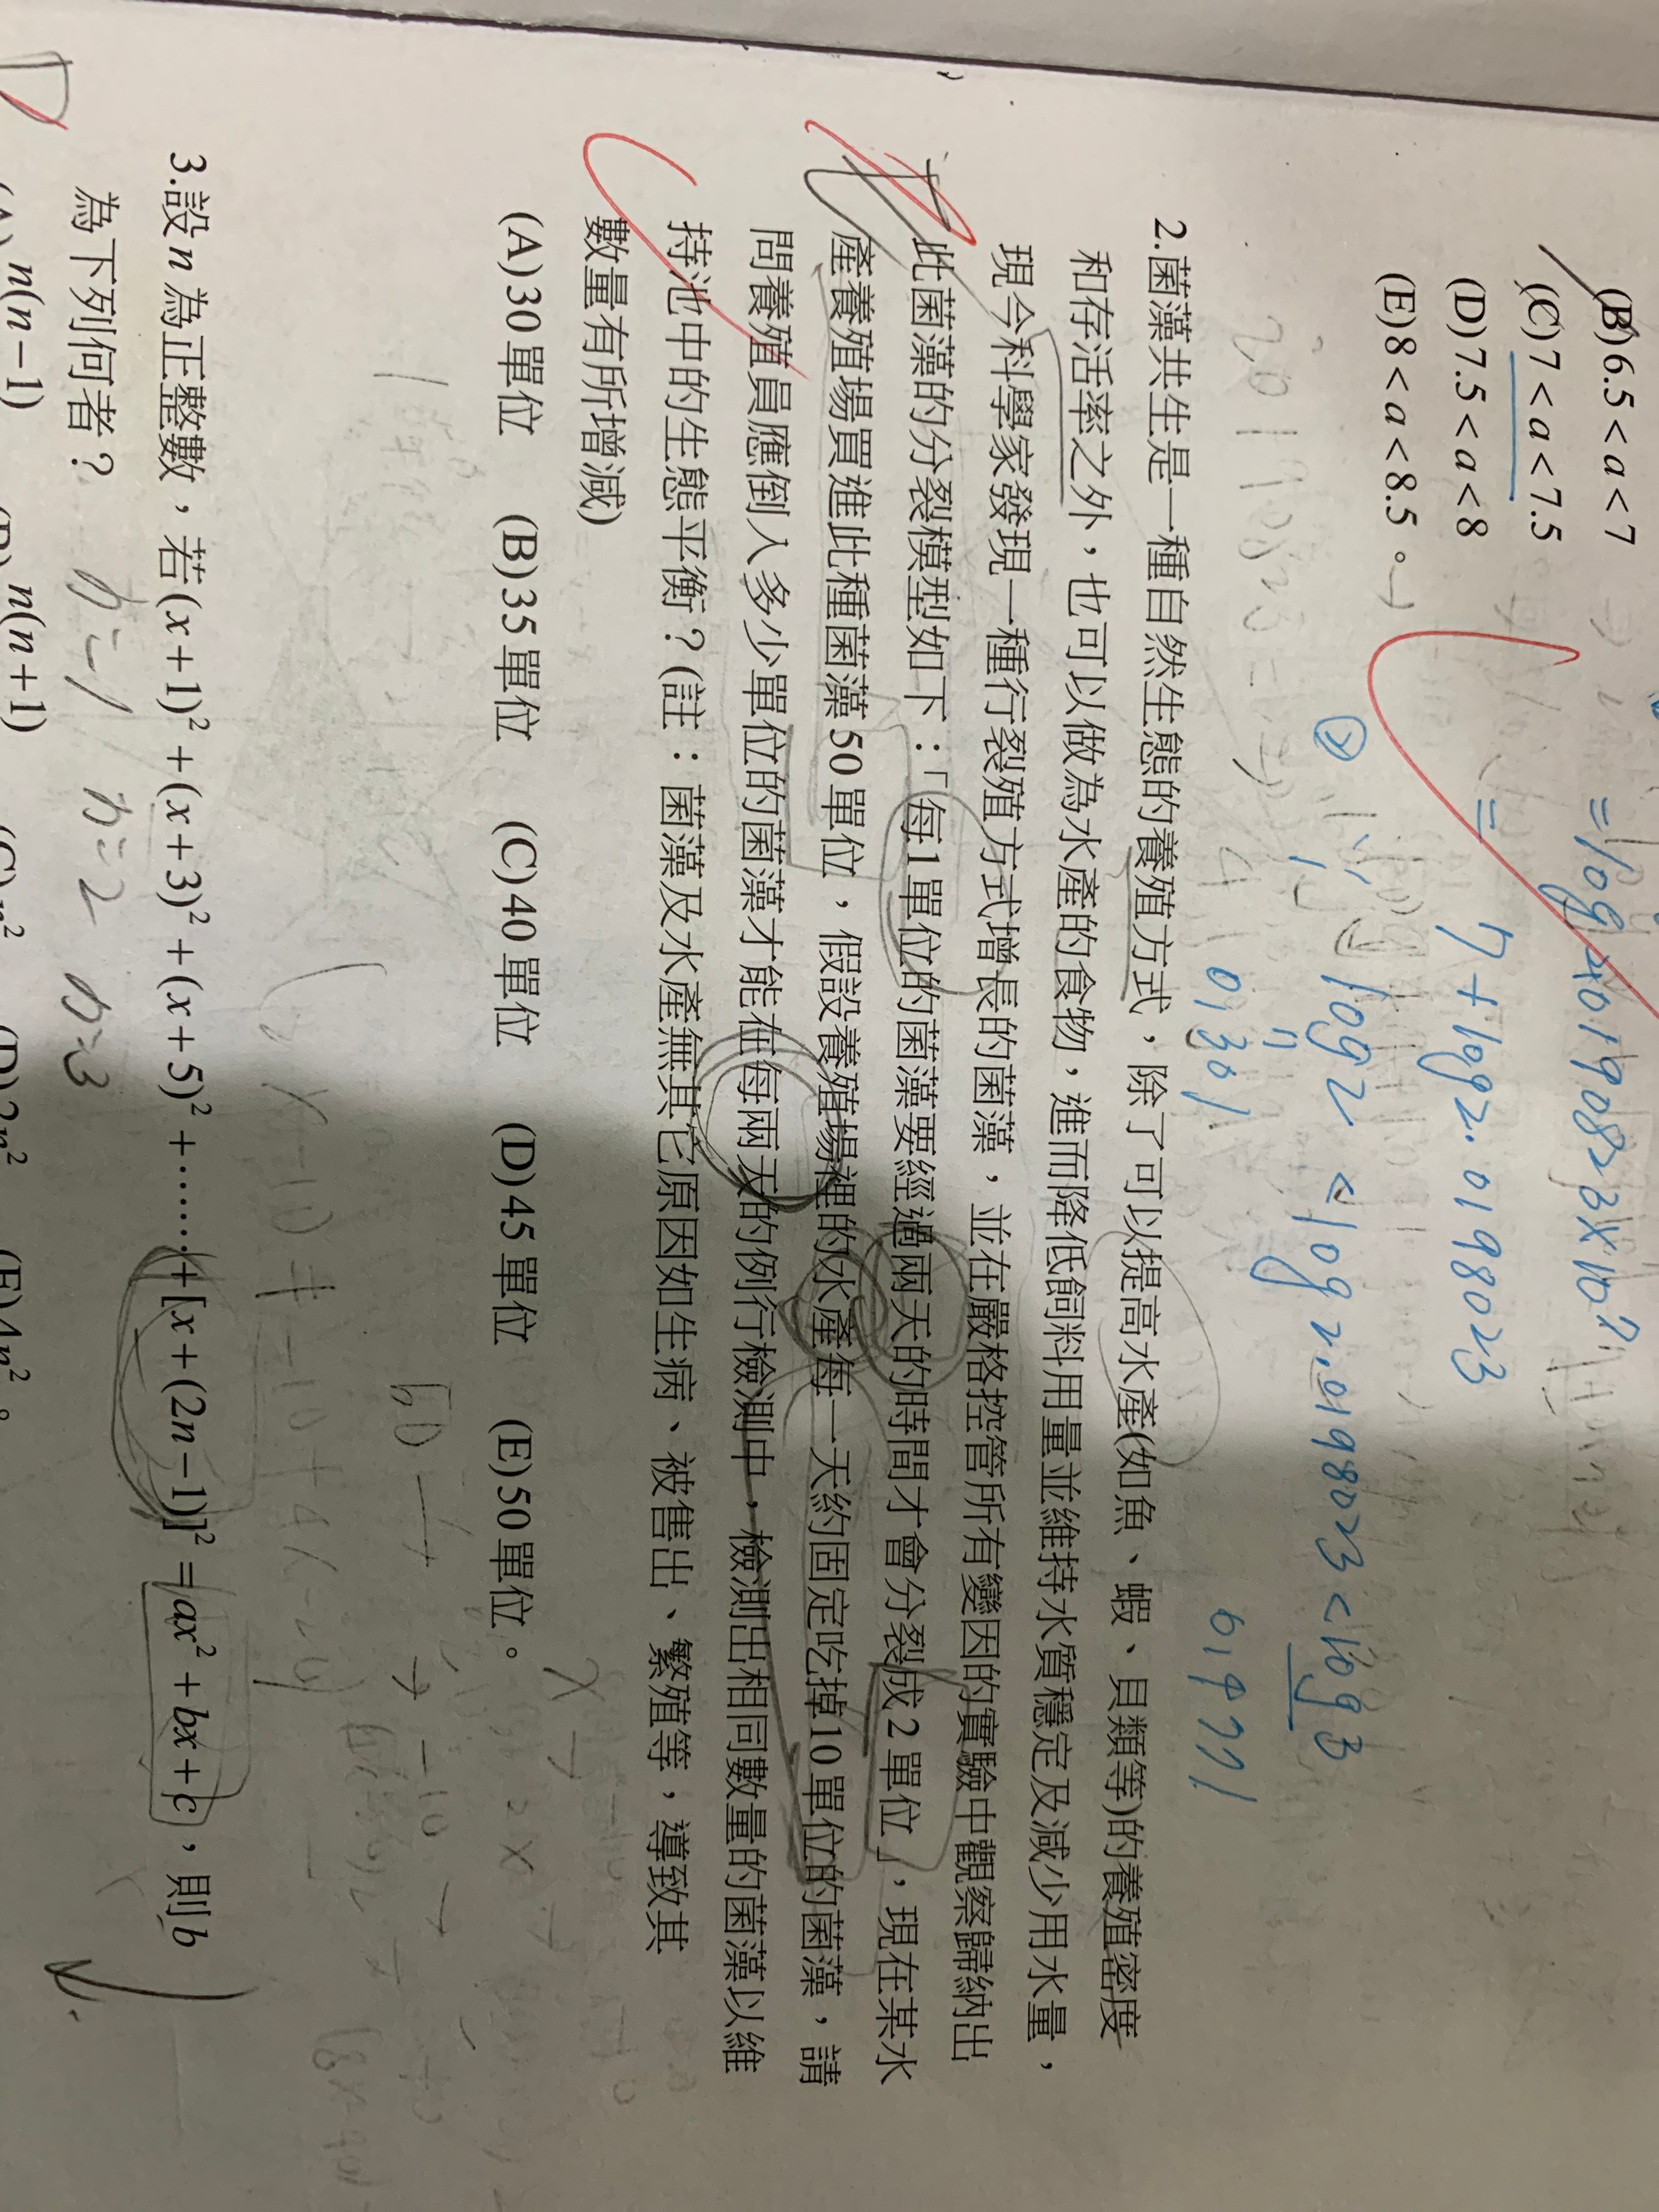 (B)6.5<a<7
(C)7<a<7.5
(D)7.5<a<8
(E)8<a<8.5。
7+log2.0198023
② log2<log2.0198023<log3
0.301
2.菌藻共生是一種自然生態的養殖方式，除了可以提高水產(如魚、蝦、貝類等)的養殖密度
和存活率之外，也可以做為水產的食物，進而降低飼料用量並維持水質穩定及減少用水量，
現今科學家發現一種行裂殖方式增長的菌藻，並在嚴格控管所有變因的實驗中觀察歸納出
此菌藻的分裂模型如下：「每1單位的菌藻要經過兩天的時間才會分裂成2單位」，現在某水
產養殖場買進此種菌藻50單位，假設養殖場裡的水產每一天約固定吃掉10單位的菌藻，請
問養殖員應倒入多少單位的菌藻才能在每兩天的例行檢測中，檢測出相同數量的菌藻以維
持池中的生態平衡？(註：菌藻及水產無其它原因如生病、被售出、繁殖等，導致其
數量有所增減)
(A)30單位 (B)35單位 (C)40單位 (D)45單位 (E)50單位。
3.設n為正整數，若(x+1)²+(x+3)²+(x+5)²+……+[x+(2n−1)]²=ax²+bx+c，則b
為下列何者？
n=1 n=2 n=3
n(n−1) n(n+1) (E)4n²。